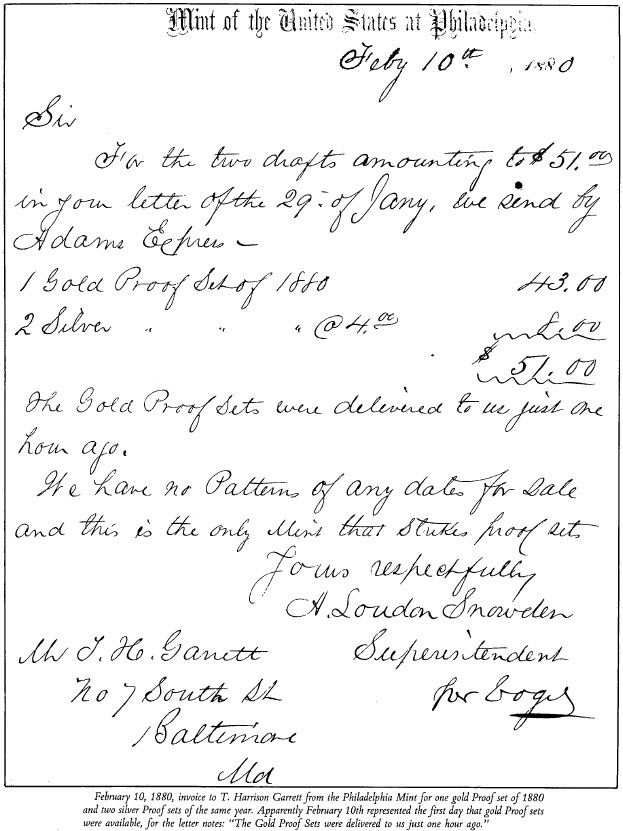 Mint of the United States at Philadelphia.
Feby 10th, 1880
Sir
For the two drafts amounting to $51.00
in your letter of the 29th of Jany, we send by
Adams Express —
1 Gold Proof Set of 1880 43.00
2 Silver " " " @ 4.00 8.00
$ 51.00
The Gold Proof Sets were delivered to us just one
hour ago.
We have no Patterns of any dates for sale
and this is the only Mint that strikes proof sets
Yours respectfully
A. Loudon Snowden
Mr T. H. Garrett Superintendent
No 7 South St per
Baltimore
Md
February 10, 1880, invoice to T. Harrison Garrett from the Philadelphia Mint for one gold Proof set of 1880
and two silver Proof sets of the same year. Apparently February 10th represented the first day that gold Proof sets
were available, for the letter notes: "The Gold Proof Sets were delivered to us just one hour ago."